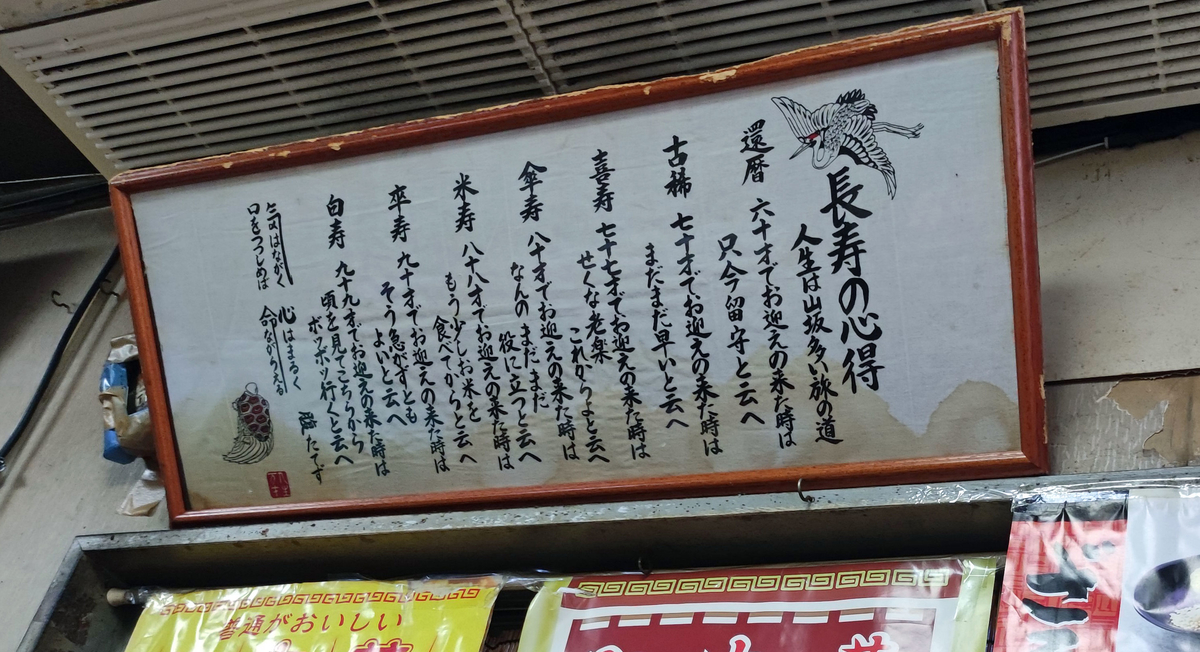 長寿の心得
人生は山坂多い旅の道
還暦 六十才でお迎えの来た時は
只今留守と云へ
古稀 七十才でお迎えの来た時は
まだまだ早いと云へ
喜寿 七十七才でお迎えの来た時は
せくな老楽
これからよと云へ
傘寿 八十才でお迎えの来た時は
なんの まだまだ
役に立つと云へ
米寿 八十八才でお迎えの来た時は
もう少しお米を
食べてからと云へ
卒寿 九十才でお迎えの来た時は
そう急がずとも
よいと云へ
白寿 九十九才でお迎えの来た時は
頃を見てこちらから
ボツボツ行くと云へ
気はながく 心はまるく
たてず
口をつつしめば 命ながらえる
普通がおいしい